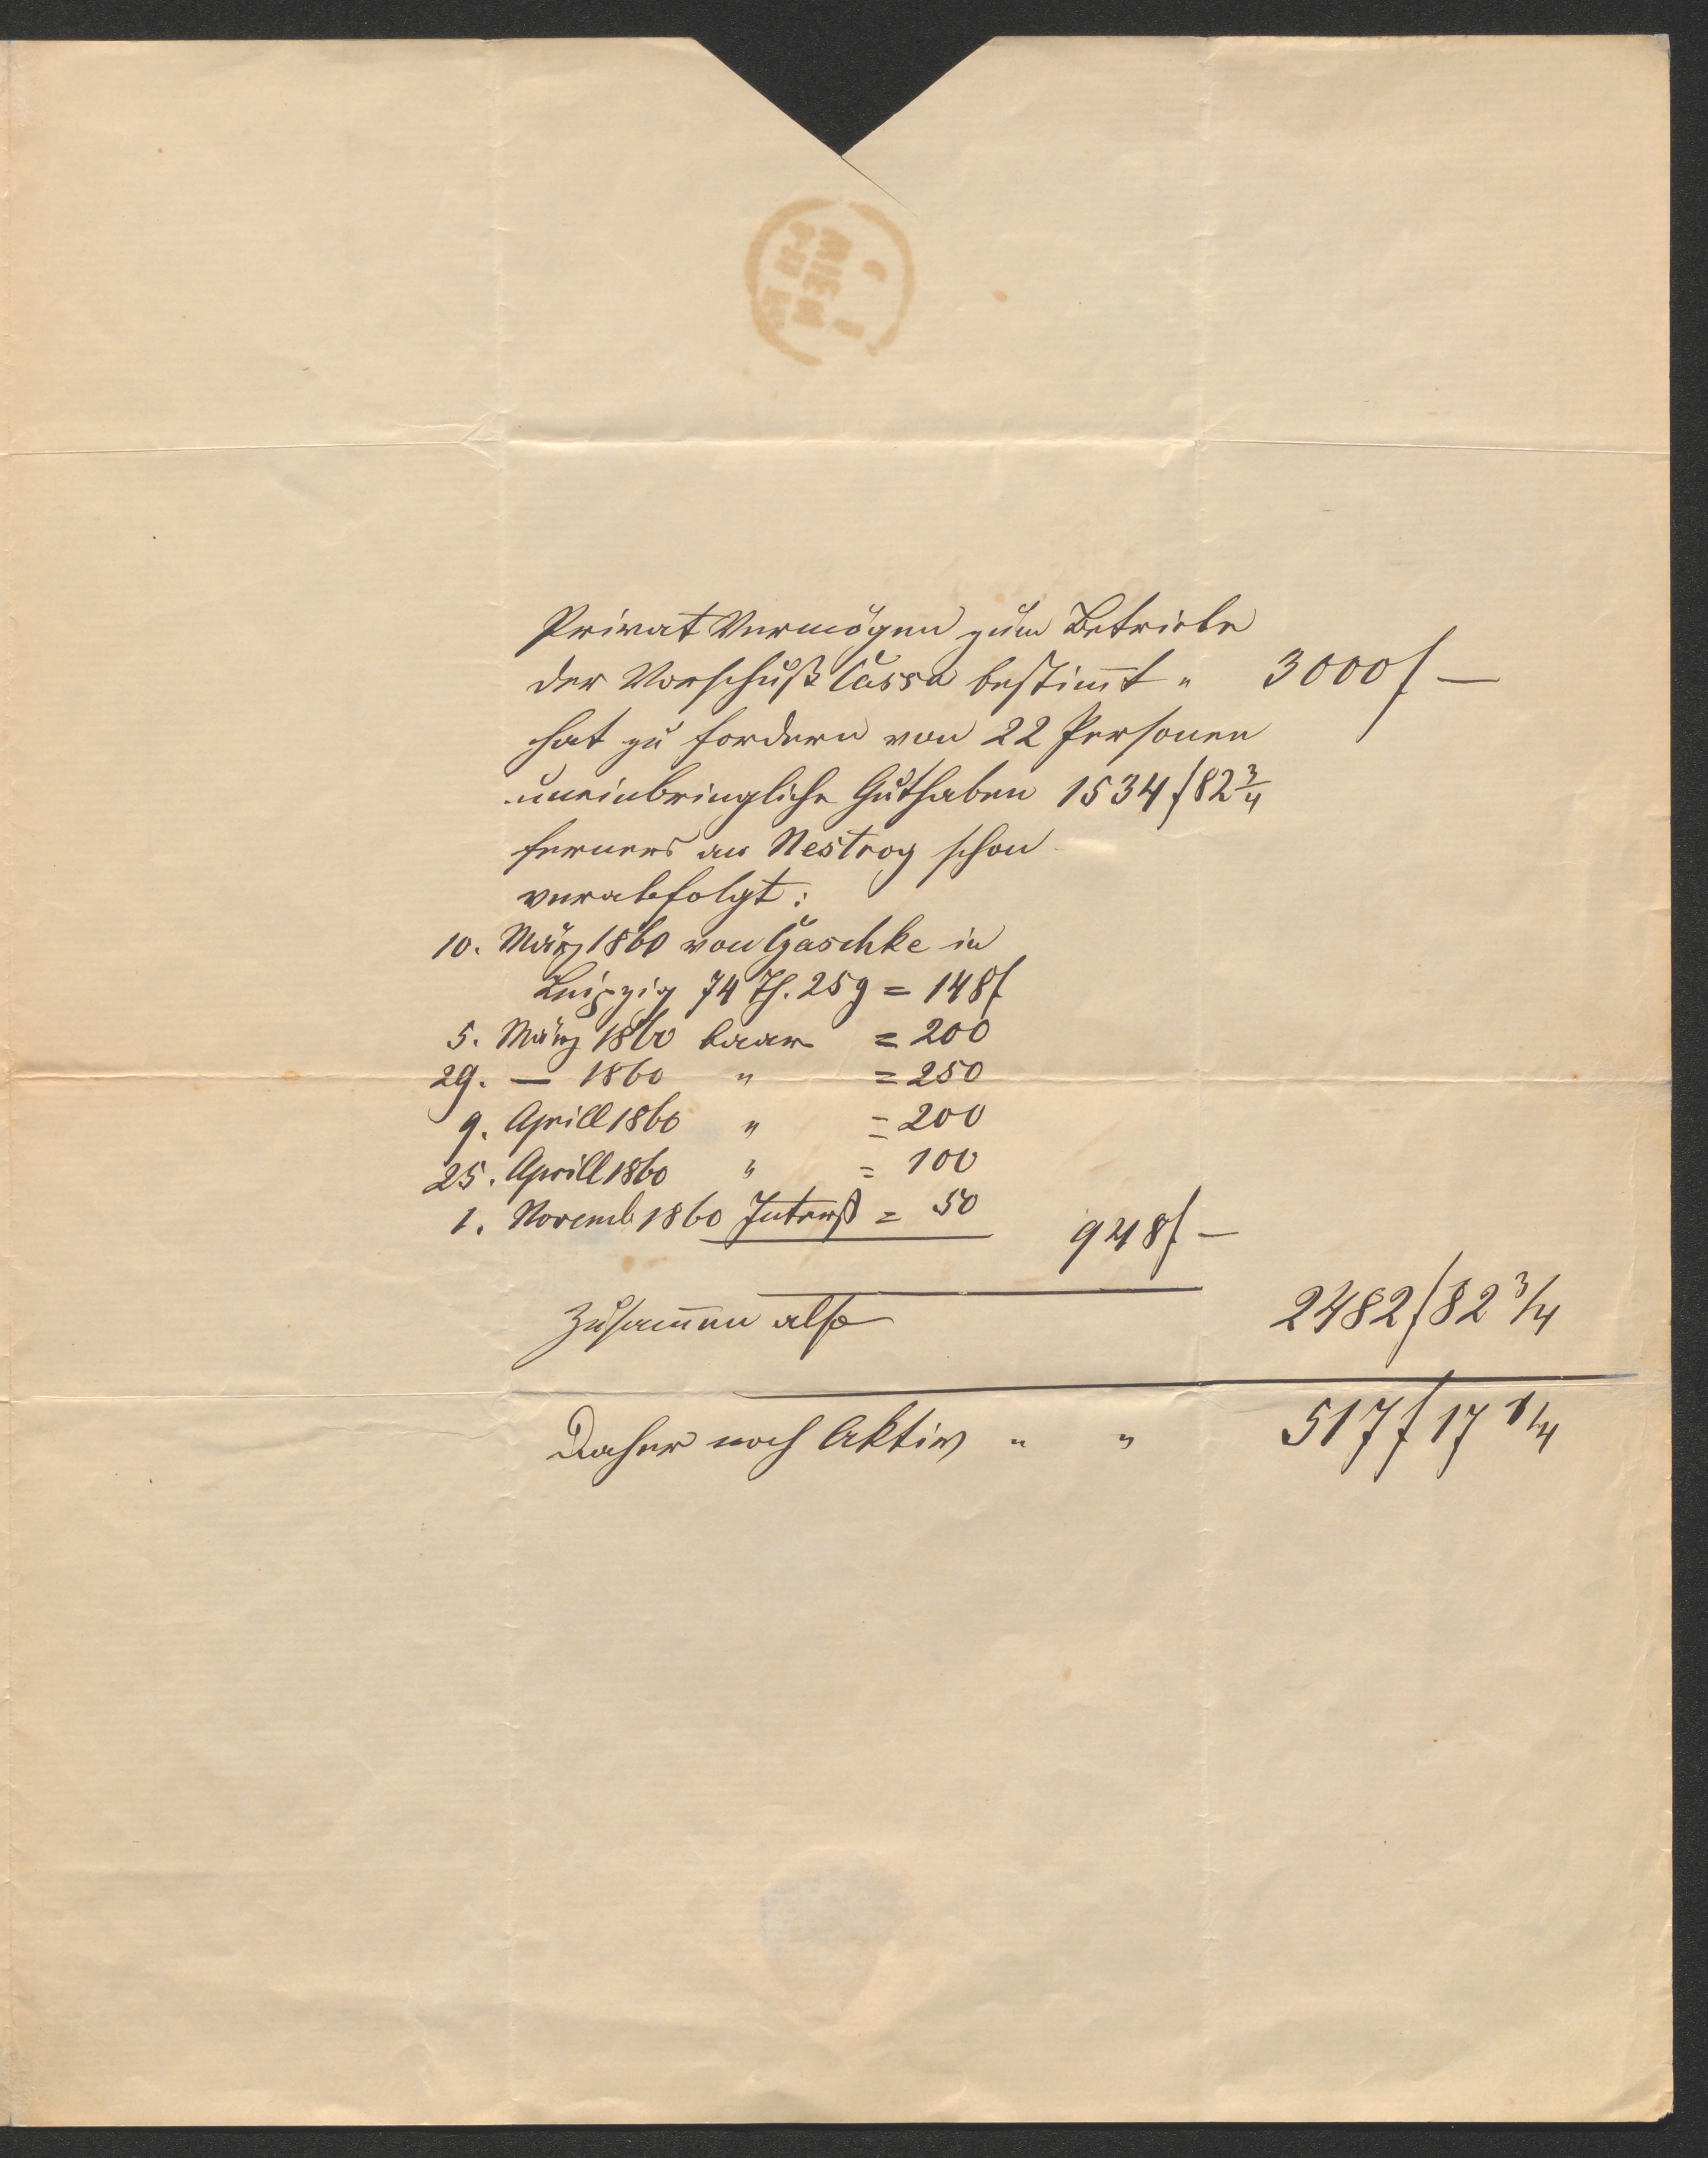 WIEN
Privat Vermögen zum Betriebe
der Vorschuß Cassa bestim̄t „ 3000 f —
hat zu fordern von 22 Personen
uneinbringliche Guthaben 1534 f 82 3/4
ferners an Nestroy schon
verabfolgt:
10. März 1860 von Gaschke in
Leipzig 74 Th. 25 g = 148 f
5. März 1860 baar = 200
29. — 1860 „ = 250
9. Aprill 1860 „ = 200
25. Aprill 1860 „ = 100
1. Novemb 1860 Intereß = 50
948 f —
Zusam̄en also 2482 f 82 3/4
Daher noch Aktiv „ „ 517 f 17 1/4